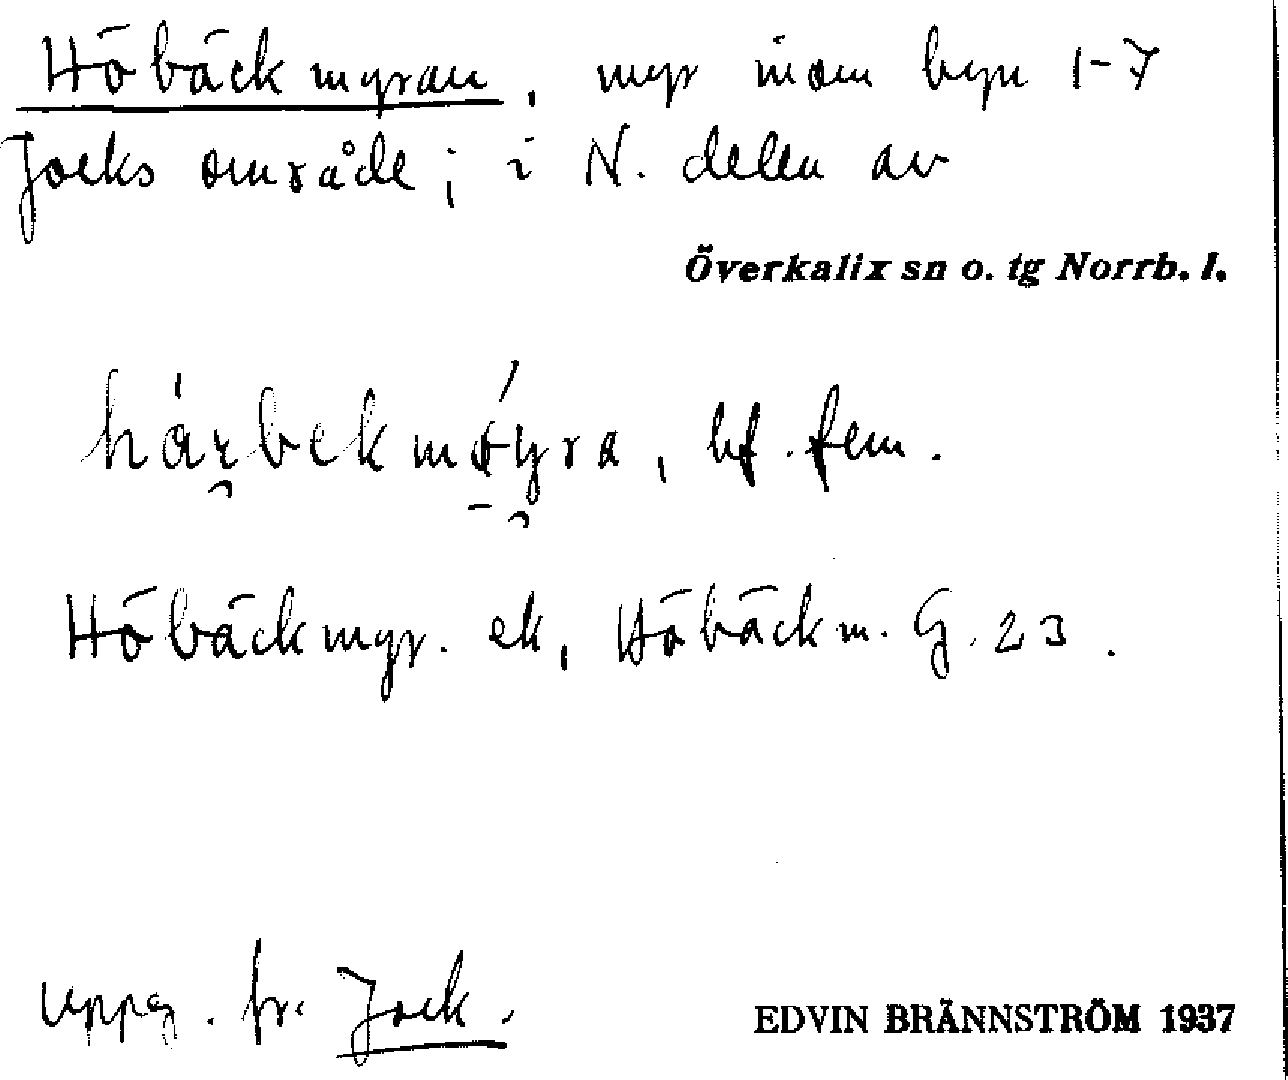 Höbäckmyran, myr inom byn 1-7
Jocks område; i N. delen av
Överkalix sn o. tg Norrb. l.
bf. fem.
Höbäckmyr. ek, Höbäckm. G. 23.
uppg. fr. Jock.
EDVIN BRÄNNSTRÖM 1937